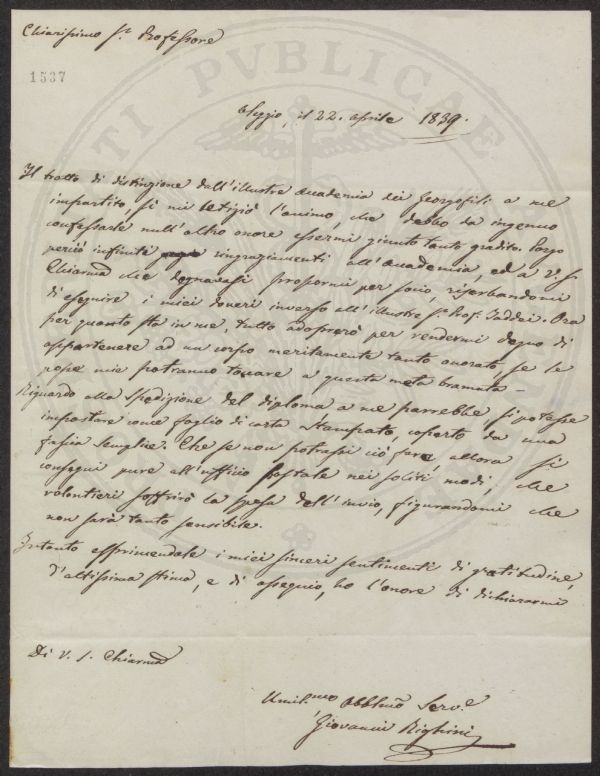 Chiarissimo Sr. Professore
1537
Oleggio, il 22. Aprile 1839.
Il tratto di distinzione dall'illustre Accademia dei Georgofili a me
impartito, sì mi letiziò l'animo, che debbo da ingenuo
confessarle null'altro onore essermi giunto tanto gradito. Porgo
perciò infiniti ringraziamenti all'Accademia, ed a V. S.
Chiarma che degnavasi propormi per socio, riserbandomi
di eseguire i miei doveri inverso all'illustre Sr. Prof. Taddei. Ora
per quanto sta in me, tutto adoprerò per rendermi degno di
appartenere ad un corpo meritamente tanto onorato, se le
posse mie potranno toccare a questa meta bramata —
Riguardo alla spedizione del diploma a me parrebbe si potesse
impostare come foglio di carta stampato, coperto da una
fascia semplice. Che se non potrassi ciò fare, allora si
consegni pure all'ufficio postale nei soliti modi, che
volontieri soffrirò la spesa dell'invio, figurandomi che
non sarà tanto sensibile.
Intanto esprimendole i miei sinceri sentimenti di gratitudine,
d'altissima stima, e di ossequio, ho l'onore di dichiararmi
Di V. S. Chiarma
Umil.mo Obblmo Serv.e
Giovanni Righini
PVBLICAE